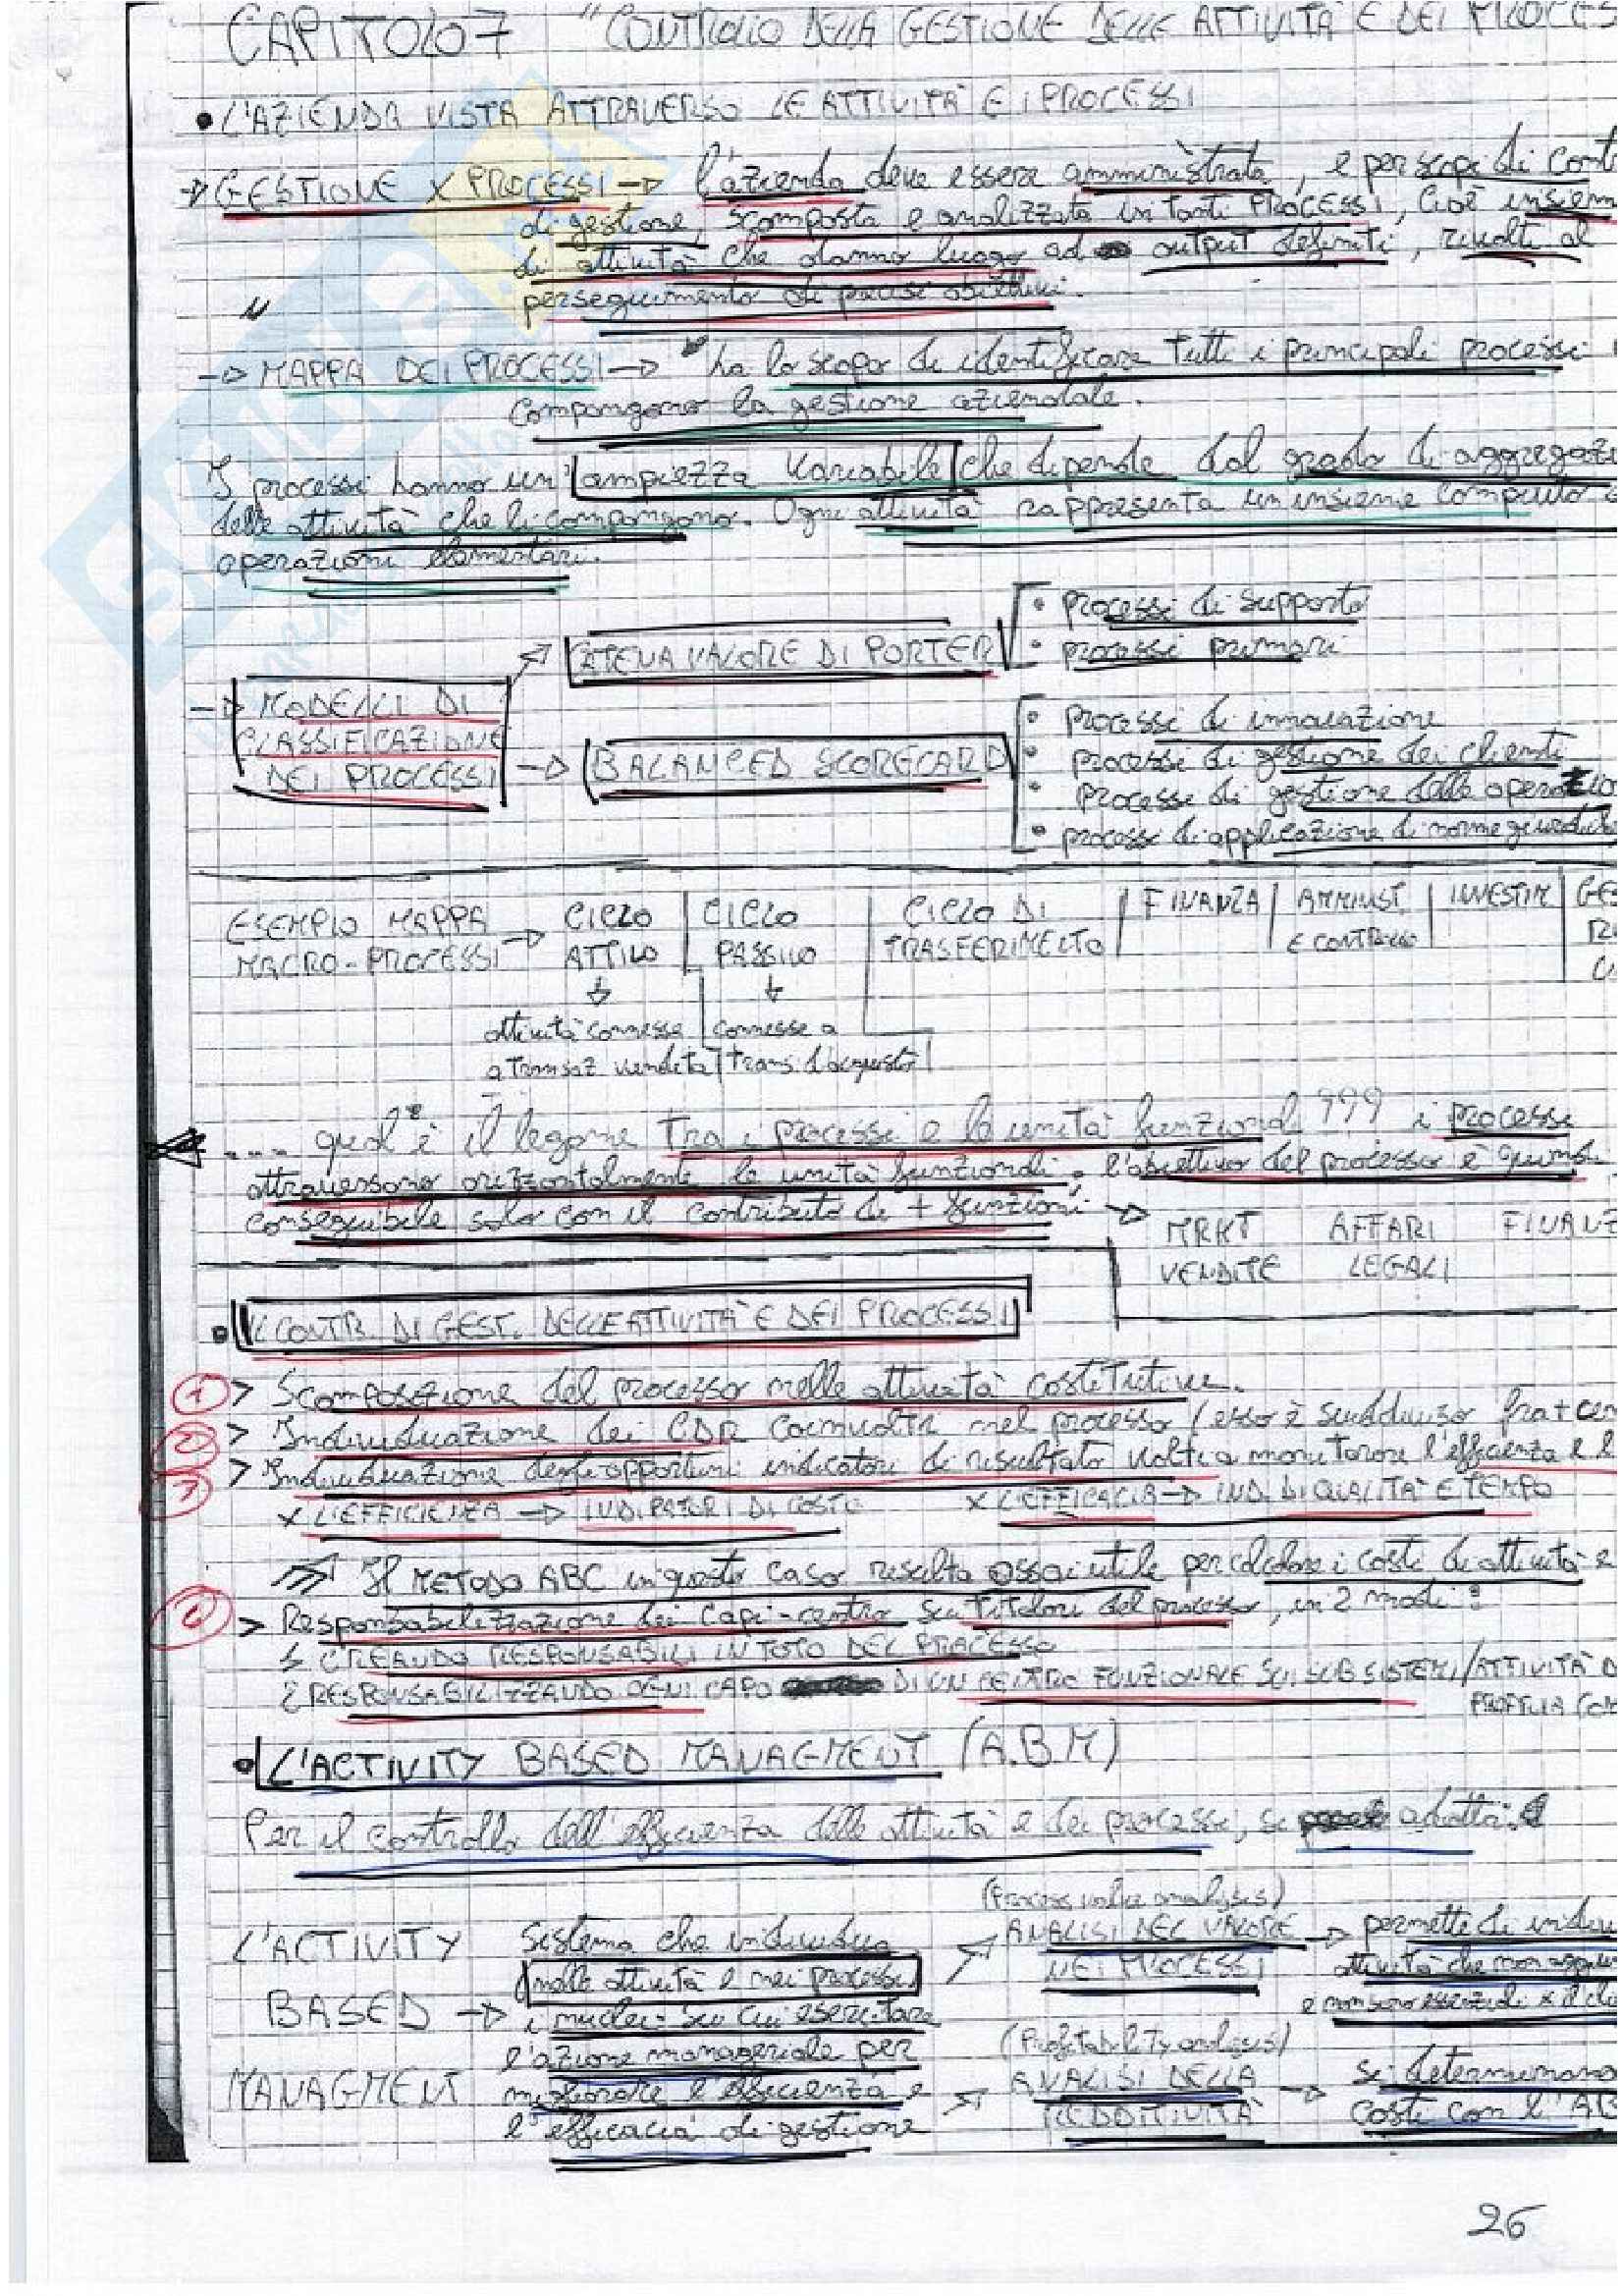 CAPITOLO 7 "CONTROLLO DELLA GESTIONE DELLE ATTIVITÀ E DEI PROCES
• L'AZIENDA VISTA ATTRAVERSO LE ATTIVITÀ E I PROCESSI
-> GESTIONE X PROCESSI -> l'azienda deve essere amministrata, e per scopi di cont
di gestione, scomposta e analizzata in tanti PROCESSI, cioè insiem
di attività che danno luogo ad output definiti, rivolti al
perseguimento di precisi obiettivi.
-> MAPPA DEI PROCESSI -> ha lo scopo di identificare tutti i principali processi
compongono la gestione aziendale.
I processi hanno un' ampiezza variabile che dipende dal grado di aggregazi
delle attività che li compongono. Ogni attività rappresenta un insieme compiuto
operazioni elementari.
• processi di supporto
CATENA VALORE DI PORTER
• processi primari
-> MODELLI DI
CLASSIFICAZIONE
DEI PROCESSI -> BALANCED SCORECARD
• processi di innovazione
• processi di gestione dei clienti
• processi di gestione delle operazio
• processi di applicazione di norme giuridich
ESEMPIO MAPPA -> CICLO | CICLO | CICLO DI | FINANZA | AMMINIST. | INVESTIM | GES
MACRO-PROCESSI ATTIVO PASSIVO TRASFERIMENTO E CONTROLLO
attività connesse | connesse a
a transaz. vendita | trans. d'acquisto
.... qual'è il legame tra i processi e le unità funzionali ??? i processi
attraversano orizzontalmente le unità funzionali, l'obiettivo del processo è quindi
conseguibile solo con il contributo di + funzioni ->
MRKT AFFARI FINANZ
VENDITE LEGALI
• IL CONTR. DI GEST. DELLE ATTIVITÀ E DEI PROCESSI
1 > Scomposizione del processo nelle attività costitutive.
2 > Individuazione dei CDR coinvolti nel processo (esso è suddiviso fra + cen
3 > Individuazione degli opportuni indicatori di risultato volti a monitorare l'efficienza e l
X L'EFFICIENZA -> INDICATORI DI COSTO X L'EFFICACIA -> IND. DI QUALITÀ E TEMPO
Il METODO ABC in questo caso risulta assai utile per calcolare i costi di attività e
4 > Responsabilizzazione dei capi-centro sui titolari del processo, in 2 modi:
1 CREANDO RESPONSABILI IN TOTO DEL PROCESSO
2 RESPONSABILIZZANDO OGNI CAPO DI UN CENTRO FUNZIONALE SUI SUB SISTEMI/ATTIVITÀ D
PROPRIA COM
• L'ACTIVITY BASED MANAGMENT (A.B.M)
Per il controllo dell'efficienza delle attività e dei processi, si adotta:
(Process value analysis)
L'ACTIVITY sistema che individua ANALISI DEL VALORE -> permette di indivi
nelle attività e nei processi DEI PROCESSI attività che non aggiun
BASED -> i nuclei su cui esercitare e non sono essenziali x il cli
l'azione manageriale per (Profitability analysis)
MANAGMENT migliorare l'efficienza e ANALISI DELLA -> si determinano
l'efficacia di gestione REDDITIVITÀ costi con l'AB
26